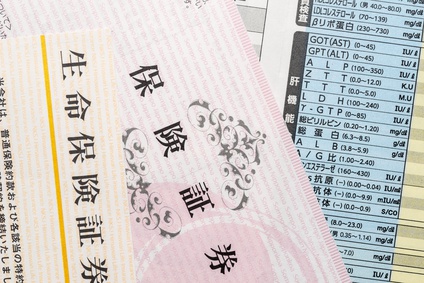 生命保険証券
保険証券
当会社は、普通保険約款および各該当の特約
HDLコレステロール (男 40.0~80.0) mg/dl
LDLコレステロール (70~139) mg/dl
βリポ蛋白 (230~730) mg/dl
肝機能
GOT(AST) (0~45) IU/ℓ
GPT(ALT) (0~45) IU/ℓ
ALP (100~350) IU/ℓ
ZTT (0.0~12.0) K.U
TTT (0.0~5.0) M.U
LDH (100~240) IU/ℓ
γ-GTP (0~85) IU/ℓ
総ビリルビン (0.20~1.20) mg/dl
総蛋白 (6.3~8.5) g/dl
ALB (3.8~5.9) g/dl
A/G比 (1.00~2.40)
ンエステラーゼ (160~430) IU/ℓ
s抗原 (-) (0.00~0.04) IU/ml
s抗体 (-) (0.0~9.9) mIU/ml
抗体 (-) (0.0~0.9) S/CO
(8.0~23.0) mg/dl
男 0.35~1.14) mg/dl